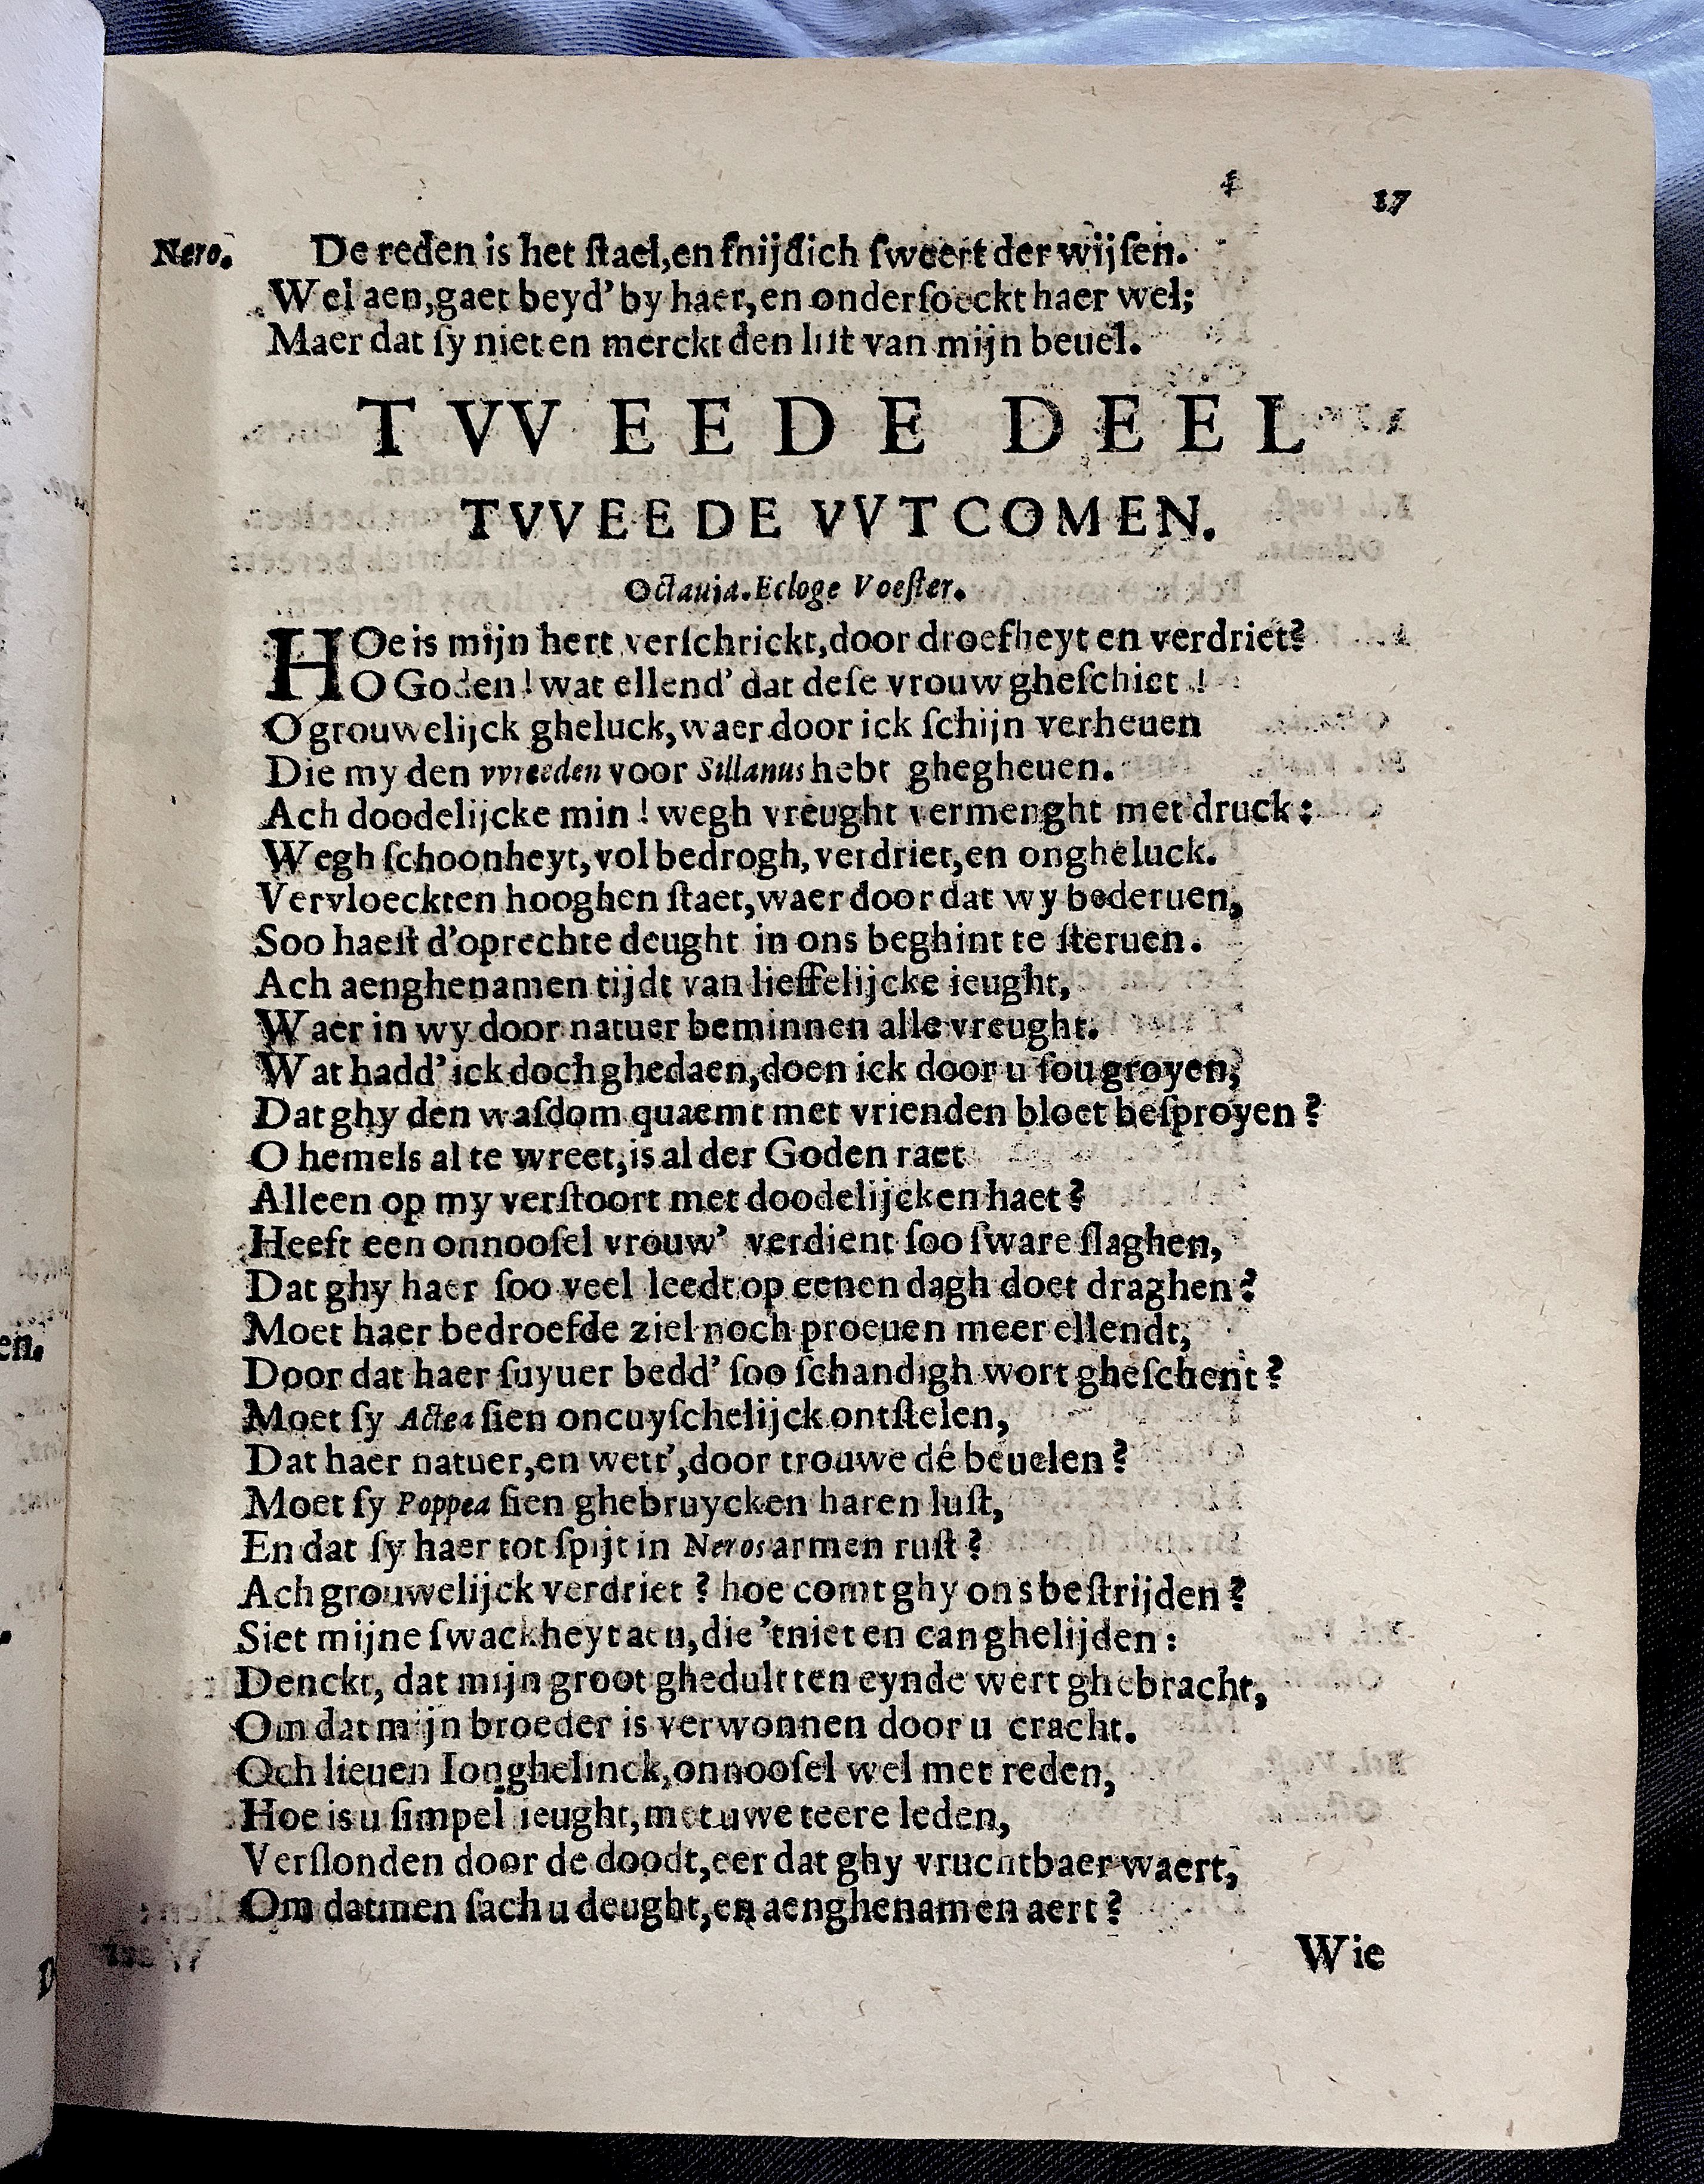 4 17
Nero. De reden is het ſtael, en ſnijdich ſweert der wijſen.
Wel aen, gaet beyd' by haer, en onderſoeckt haer wel;
Maer dat ſy niet en merckt den liſt van mijn beuel.
TVVEEDE DEEL
TVVEEDE VVTCOMEN.
Octauia. Ecloge Voeſter.
HOe is mijn hert verſchrickt, door droefheyt en verdriet?
O Goden! wat ellend' dat deſe vrouw gheſchiet!
O grouwelijck gheluck, waer door ick ſchijn verheuen
Die my den vvreeden voor Sillanus hebt ghegheuen.
Ach doodelijcke min! wegh vreught vermenght met druck:
Wegh ſchoonheyt, vol bedrogh, verdriet, en ongheluck.
Vervloeckten hooghen ſtaet, waer door dat wy bederuen,
Soo haeſt d'oprechte deught in ons beghint te ſteruen.
Ach aenghenamen tijdt van lieffelijcke ieught,
Waer in wy door natuer beminnen alle vreught.
Wat hadd' ick doch ghedaen, doen ick door u ſou groyen,
Dat ghy den waſdom quaemt met vrienden bloet beſproyen?
O hemels al te wreet, is al der Goden raet
Alleen op my verſtoort met doodelijcken haet?
Heeft een onnooſel vrouw' verdient ſoo ſware ſlaghen,
Dat ghy haer ſoo veel leedt op eenen dagh doet draghen?
Moet haer bedroefde ziel noch proeuen meer ellendt,
Door dat haer ſuyuer bedd' ſoo ſchandigh wort gheſchent?
Moet ſy Actea ſien oncuyſchelijck ontſtelen,
Dat haer natuer, en wett', door trouwe dē beuelen?
Moet ſy Poppea ſien ghebruycken haren luſt,
En dat ſy haer tot ſpijt in Neros armen ruſt?
Ach grouwelijck verdriet? hoe comt ghy ons beſtrijden?
Siet mijne ſwackheyt aen, die 't niet en can ghelijden:
Denckt, dat mijn groot ghedult ten eynde wert ghebracht,
Om dat mijn broeder is verwonnen door u cracht.
Och lieuen Ionghelinck, onnooſel wel met reden,
Hoe is u ſimpel ieught, met uwe teere leden,
Verſlonden door de doodt, eer dat ghy vruchtbaer waert,
Om datmen ſach u deught, en aenghenamen aert?
Wie
en.